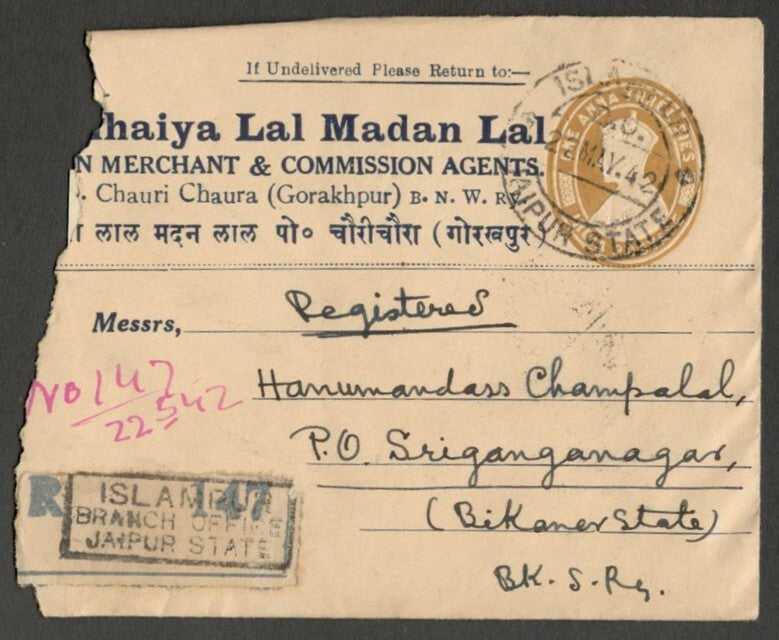 If Undelivered Please Return to:—
haiya Lal Madan Lal
N MERCHANT & COMMISSION AGENTS.
Chauri Chaura (Gorakhpur) B. N. W. Ry
लाल मदन लाल पो० चौरीचौरा (गोरखपुर)
ONE ANNA THREE PIES
P.O.
MAY.42
JAIPUR STATE
Messrs, Registered
No 147
22 5 42
Hanumandass Champalal,
P.O. Sriganganagar,
(Bikaner State)
BK. S. Ry.
R 147
ISLAMPUR
BRANCH OFFICE
JAIPUR STATE